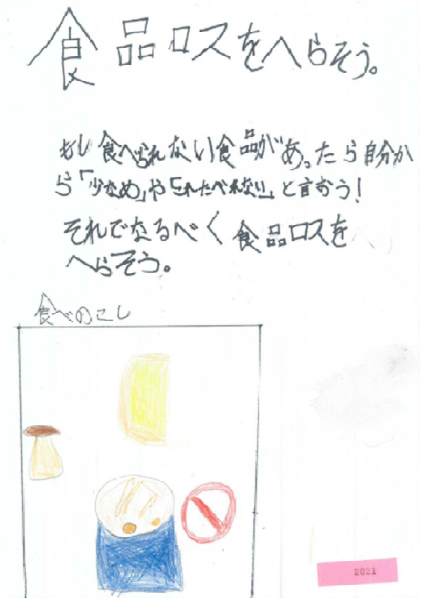 食品ロスをへらそう。
もし食べられない食品があったら自分か
ら「少なめ」や「これたべれない」と言おう!
それでなるべく食品ロスを
へらそう。
食べのこし
2021